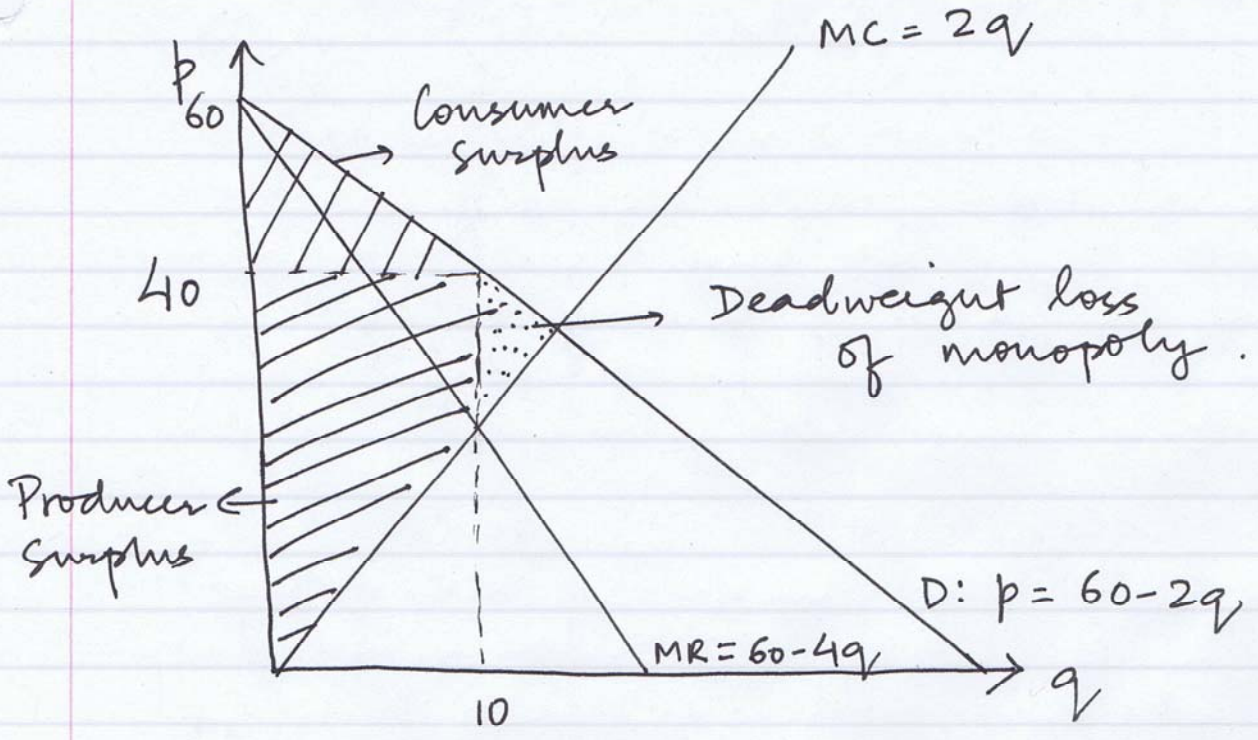 MC = 2q
p
60
Consumer
surplus
40
Deadweight loss
of monopoly.
Producer
surplus
D: p = 60-2q
MR = 60-4q
q
10